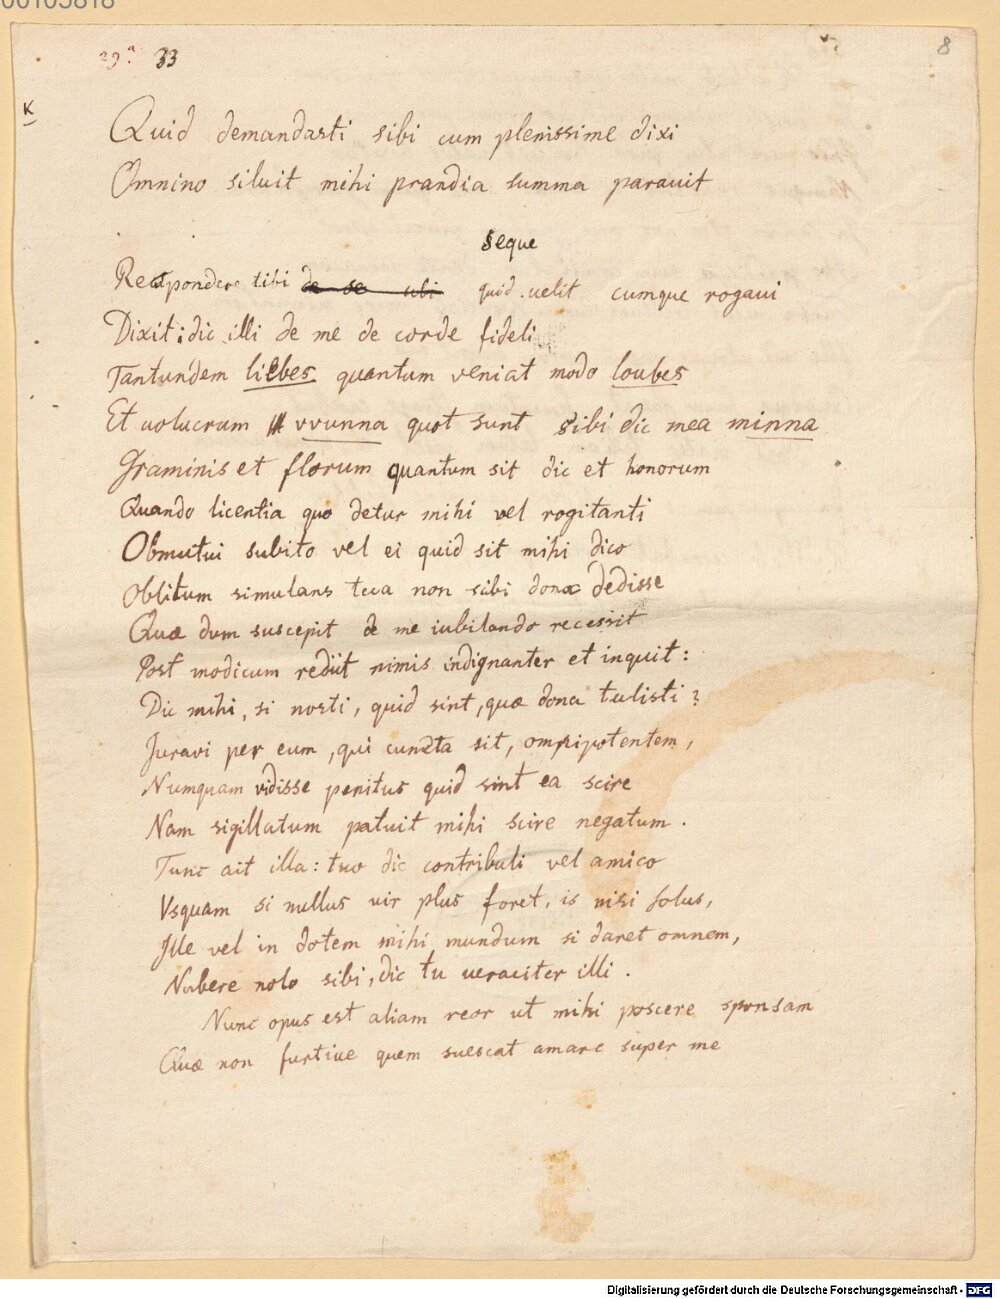 00105818
29.ª 33
8
K
Quid demandasti sibi cum plenissime dixi
Omnino siluit mihi prandia summa parauit
seque
Respondere tibi de se ubi quid uelit cumque rogaui
Dixit: dic illi de me de corde fideli
Tantundem liebes quantum veniat modo loubes
Et uolucrum vvunna quot sunt sibi dic mea minna
Graminis et florum quantum sit dic et honorum
Quando licentia quo detur mihi vel rogitanti
Obmutui subito vel ei quid sit mihi dico
Oblitum simulans tua non sibi dona dedisse
Quæ dum suscepit de me iubilando recessit
Post modicum rediit nimis indignanter et inquit:
Dic mihi, si nosti, quid sint, quæ dona tulisti?
Juravi per eum, qui cuncta sit, omnipotentem,
Numquam vidisse penitus quid sint ea scire
Nam sigillatum patuit mihi scire negatum.
Tunc ait illa: tuo dic contribuli vel amico
Vsquam si nullus uir plus foret, is nisi solus,
Ille vel in dotem mihi mundum si daret omnem,
Nubere nolo sibi, dic tu ueraciter illi.
Nunc opus est aliam reor ut mihi poscere sponsam
Quæ non furtiue quem suescat amare super me
Digitalisierung gefördert durch die Deutsche Forschungsgemeinschaft - DFG